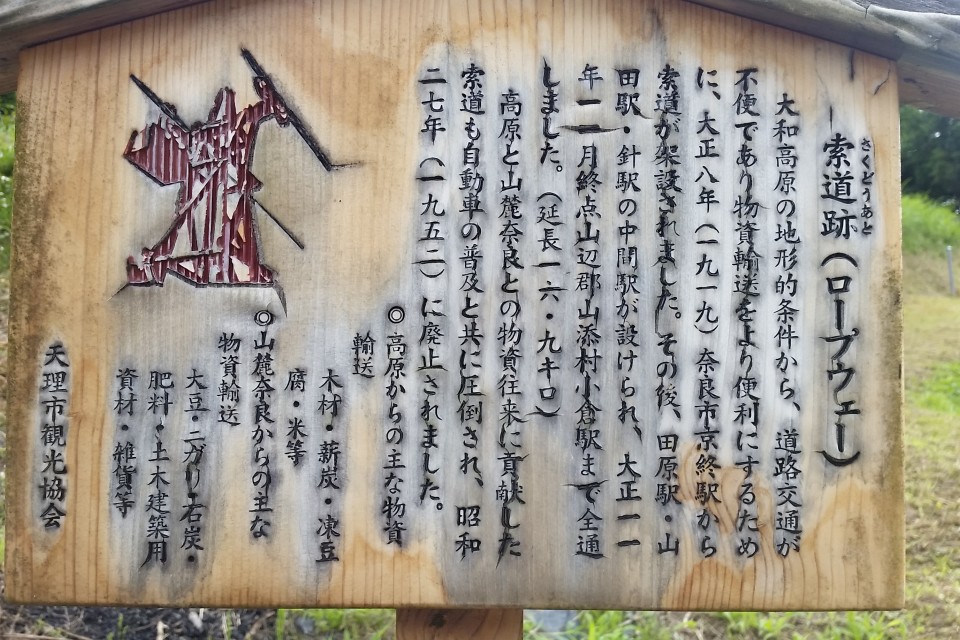 索道跡（ロープウェー）
さくどうあと
大和高原の地形的条件から、道路交通が
不便であり物資輸送をより便利にするため
に、大正八年（一九一九）奈良市京終駅から
索道が架設されました。その後、田原駅・山
田駅・針駅の中間駅が設けられ、大正一一
年一一月終点山辺郡山添村小倉駅まで全通
しました。（延長一六・九キロ）
高原と山麓奈良との物資往来に貢献した
索道も自動車の普及と共に圧倒され、昭和
二七年（一九五二）に廃止されました。
◎高原からの主な物資
輸送
木材・薪炭・凍豆
腐・米等
◎山麓奈良からの主な
物資輸送
大豆・ニガリ・石炭・
肥料・土木建築用
資材・雑貨等
天理市観光協会